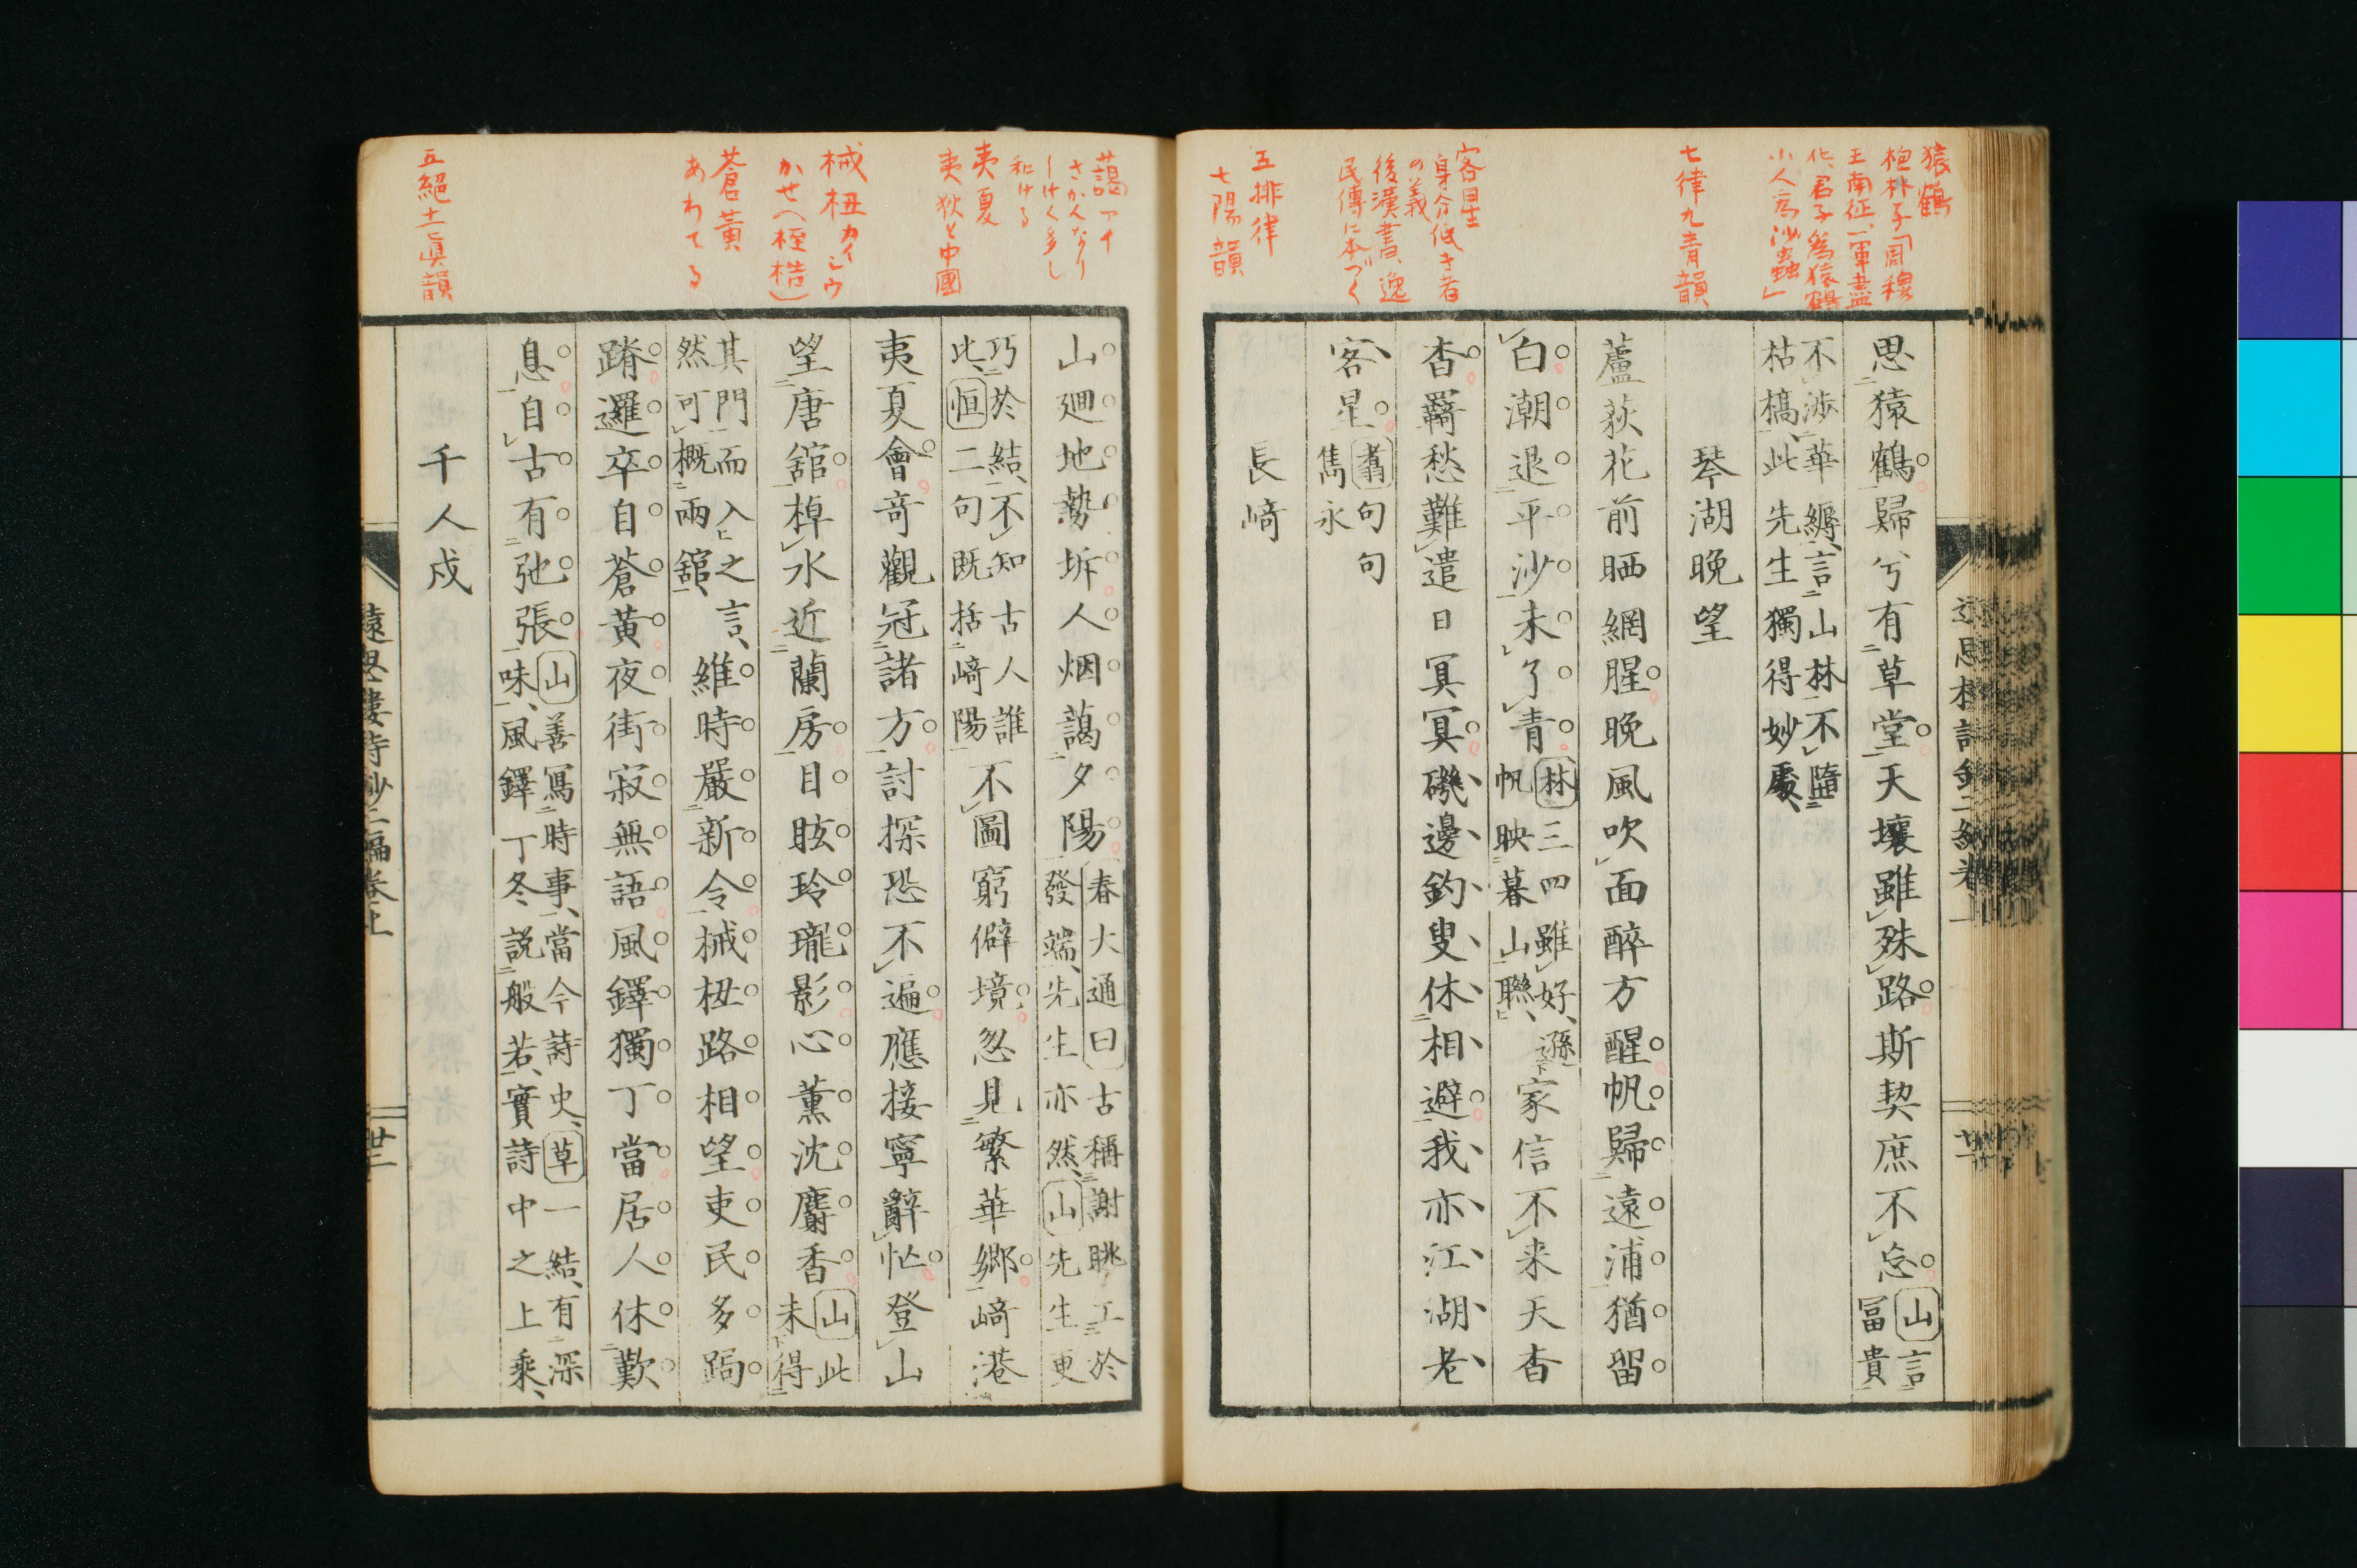 猿鶴
抱朴子「周穆
王南征、一軍盡
化、君子爲猿鶴
小人爲沙蟲」
七律九青韻、
客星
身分低き者
の義
後漢書、逸
民傳に本づく
五排律
七陽韻
思猿鶴歸兮有草堂天壤雖殊路斯契庶不忘山言
富貴
不渉華縟言山林不墮
枯槁此先生獨得妙處
琴湖晩望
蘆荻花前晒網腥晩風吹面醉方醒帆歸遠浦猶留
白潮退平沙未了青林三四雖好遜
帆映暮山聯
家信不来天杳
杳羇愁難遣日冥冥磯邊釣叟休相避我亦江湖老
客星翥句句
雋永
長﨑
藹アイ
さかんなり
しげく多し
和ける
夷夏
夷狄と中國
械杻カイシウ
かせ(桎梏)
蒼黄
あわてる
五絕十一眞韻
山廻地勢坼人烟藹夕陽春大通曰古稱謝眺工於
發端先生亦然山先生更
巧於結不知古人誰
此恒二句既括﨑陽
不圖窮僻境忽見繁華鄉﨑港
夷夏會奇觀冠諸方討探恐不遍應接寧辭忙登山
望唐舘棹水近蘭房目眩玲瓏影心薰沈麝香山此
未得
其門而入之言
然可概兩舘
維時嚴新令械杻路相望吏民多跼
蹐邏卒自蒼黃夜街寂無語風鐸獨丁當居人休歎
息自古有弛張山善寫時事當今詩史草一結有深
味風鐸丁冬説般若實詩中之上乘
千人戍
遠思樓詩鈔二編卷上
廿二